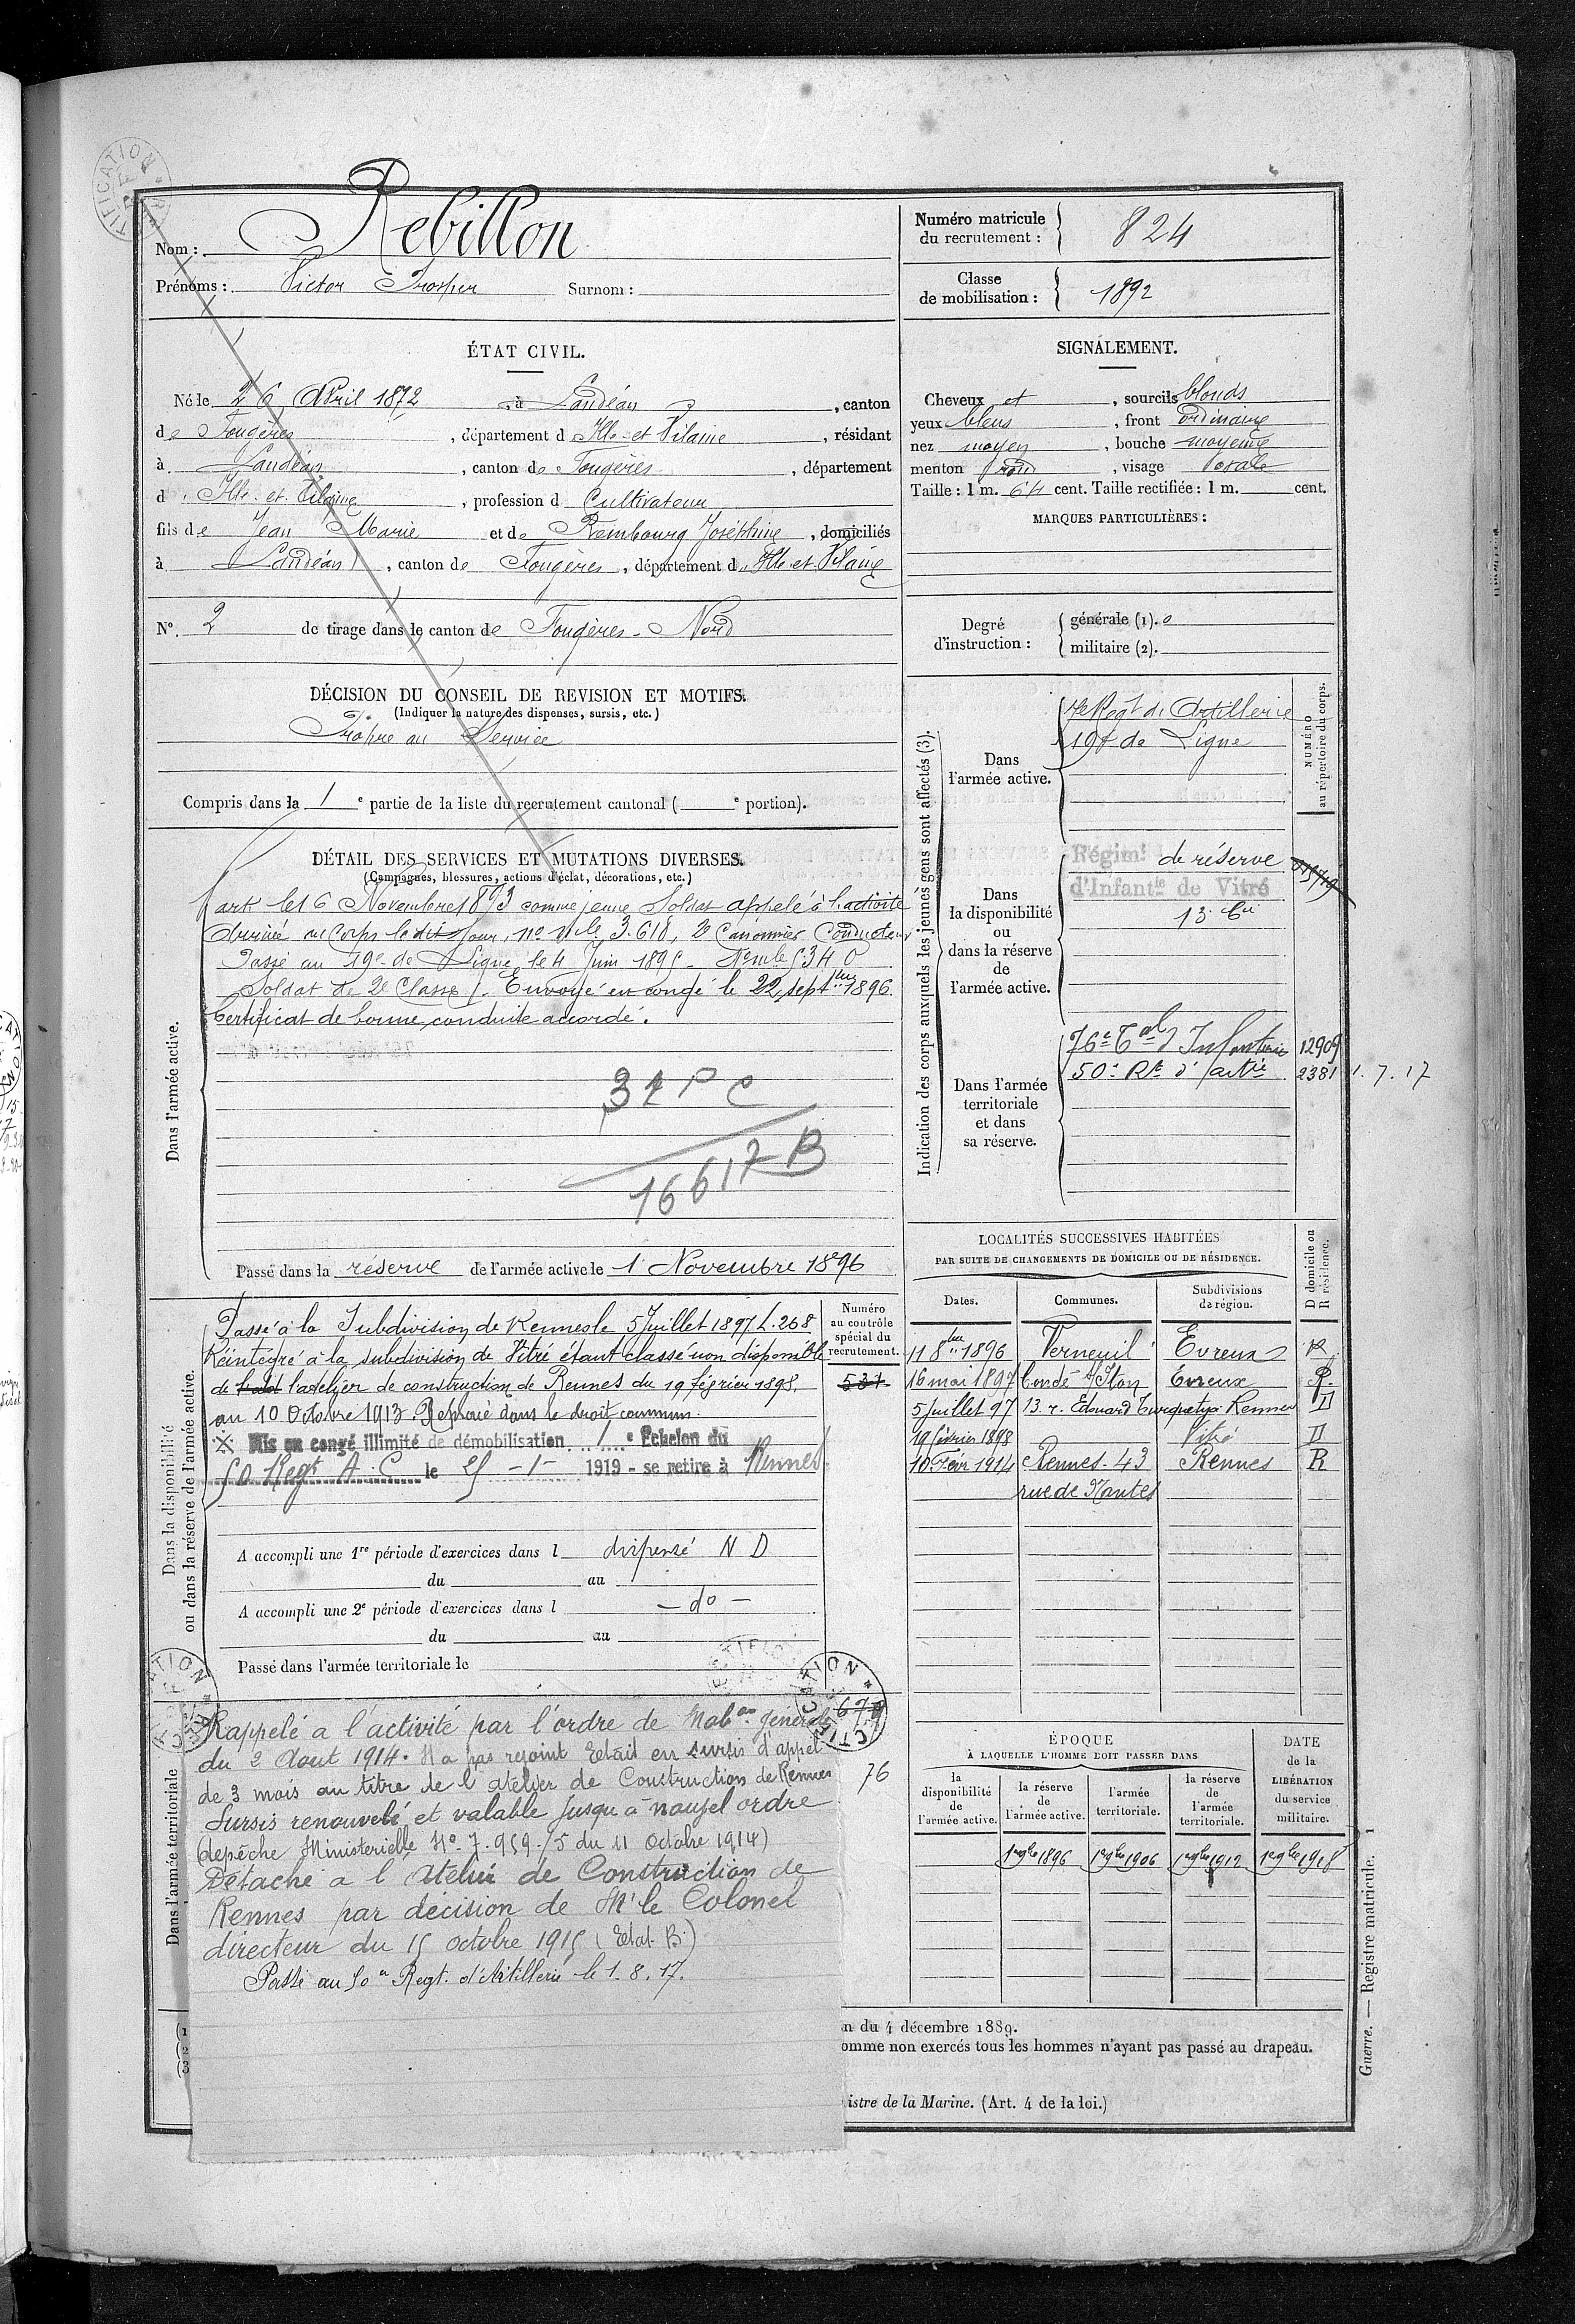 Nom : Rebillon
Prénoms : Victor Prosper Surnom :
Numéro matricule du recrutement : 824
Classe de mobilisation : 1892
ÉTAT CIVIL.
Né le 26 Avril 1872, à Landéan, canton
de Fougères, département d Ille-et-Vilaine, résidant
à Landéan, canton de Fougères, département
d Ille-et-Vilaine, profession d Cultivateur
fils de Jean Marie et de Rembourg Joséphine, domiciliés
à Landéan, canton de Fougères, département d Ille et Vilaine
N°. 2 de tirage dans le canton de Fougères-Nord
SIGNALEMENT.
Cheveux et, sourcils blonds
yeux bleus, front ordinaire
nez moyen, bouche moyenne
menton rond, visage ovale
Taille : 1 m. 64 cent. Taille rectifiée : 1 m. cent.
MARQUES PARTICULIÈRES :
Degré d'instruction :
générale (1). 0
militaire (2).
DÉCISION DU CONSEIL DE REVISION ET MOTIFS.
(Indiquer la nature des dispenses, sursis, etc.)
Propre au Service
Compris dans la 1e partie de la liste du recrutement cantonal ( e portion).
DÉTAIL DES SERVICES ET MUTATIONS DIVERSES.
(Campagnes, blessures, actions d'éclat, décorations, etc.)
Dans l'armée active.
Part le 16 Novembre 1893 comme jeune Soldat appelé à l'activité
Arrivé au Corps le dit Jour, no Mle 3.618, 2e Canonnier Conducteur
Passé au 19e de Ligne le 4 Juin 1895 - No mle 5340
Soldat de 2e Classe. Envoyé en congé le 22 septbre 1896.
Certificat de bonne conduite accordé.
16617 B
Passé dans la réserve de l'armée active le 1 Novembre 1896
Indication des corps auxquels les jeunes gens sont affectés (3).
NUMÉRO au répertoire du corps.
Dans l'armée active.
7e Regt di Artillerie
19e de Ligne
Dans la disponibilité ou dans la réserve de l'armée active.
Régimt de réserve
d'Infantie de Vitré
Dans l'armée territoriale et dans sa réserve.
76e Tal d'Infanterie 12909
50e Rt d'artie 2381 1.7.17
Dans la disponibilité ou dans la réserve de l'armée active.
Numéro au contrôle spécial du recrutement.
537
Passé à la Subdivision de Rennes le 5 Juillet 1897 L.268
Réintégré à la subdivision de Vitré étant classé non disponible
de l'atelier de construction de Rennes du 19 février 1898.
au 10 Octobre 1913. Replacé dans le droit commun.
Mis en congé illimité de démobilisation 1e Echelon du
50 Regt A.C. le 25-1-1919 - se retire à Rennes
A accompli une 1re période d'exercices dans l dispensé N D
du au
A accompli une 2e période d'exercices dans l - do -
du au
Passé dans l'armée territoriale le
LOCALITÉS SUCCESSIVES HABITÉES
PAR SUITE DE CHANGEMENTS DE DOMICILE OU DE RÉSIDENCE.
Dates. Communes. Subdivisions de région. D domicile ou R résidence.
11 8bre 1896 Verneuil Evreux R
16 mai 1897 Condé s/Iton Evreux R.
5 Juillet 97 13. r. Edouard Turquety Rennes D
19 février 1898 Vitré D
10 Févr 1914 Rennes. 43 Rennes R
rue de Nantes
Dans l'armée territoriale
Rappelé a l'activité par l'ordre de Mobon générale
du 2 Aout 1914. N'a pas rejoint Etait en sursis d'appel
de 3 mois au titre de l'atelier de Construction de Rennes
Sursis renouvelé et valable jusqu'à nouvel ordre
(depêche Ministerielle No. 7.959./5 du 11 Octobre 1914)
Détaché a l'Atelier de Construction de
Rennes par décision de Mr le Colonel
directeur du 15 octobre 1915 (Etat B.)
Passé au 50e Regt. d'Artillerie le 1.8.17.
76
ÉPOQUE
À LAQUELLE L'HOMME DOIT PASSER DANS
la disponibilité de l'armée active.
la réserve de l'armée active.
l'armée territoriale.
la réserve de l'armée territoriale.
DATE de la LIBÉRATION du service militaire.
1er 9bre 1896 1er 9bre 1906 1er 9bre 1912 1er 9bre 1918
n du 4 décembre 1889.
omme non exercés tous les hommes n'ayant pas passé au drapeau.
istre de la Marine. (Art. 4 de la loi.)
Guerre. — Registre matricule. 1